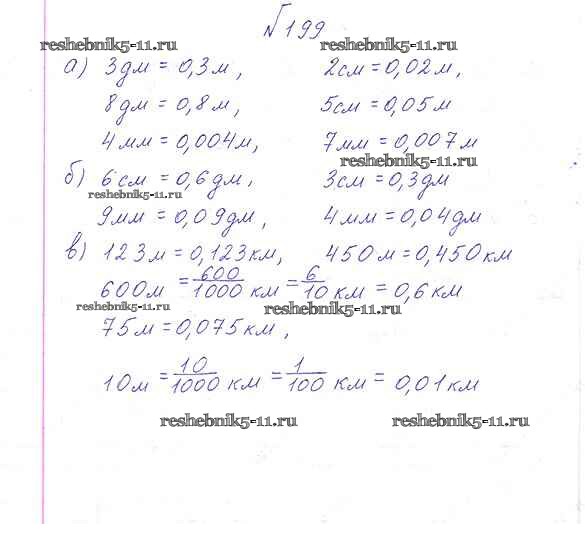 №199
reshebnik5-11.ru reshebnik5-11.ru
а) 3дм = 0,3м, 2см = 0,02м,
8дм = 0,8м, 5см = 0,05м
4мм = 0,004м, 7мм = 0,007м
reshebnik5-11.ru
б) 6см = 0,6дм, 3см = 0,3дм
reshebnik5-11.ru
9мм = 0,09дм, 4мм = 0,04дм
в) 123м = 0,123км, 450м = 0,450км
600м = 600/1000 км = 6/10 км = 0,6км
reshebnik5-11.ru reshebnik5-11.ru
75м = 0,075км,
10м = 10/1000 км = 1/100 км = 0,01км
reshebnik5-11.ru reshebnik5-11.ru